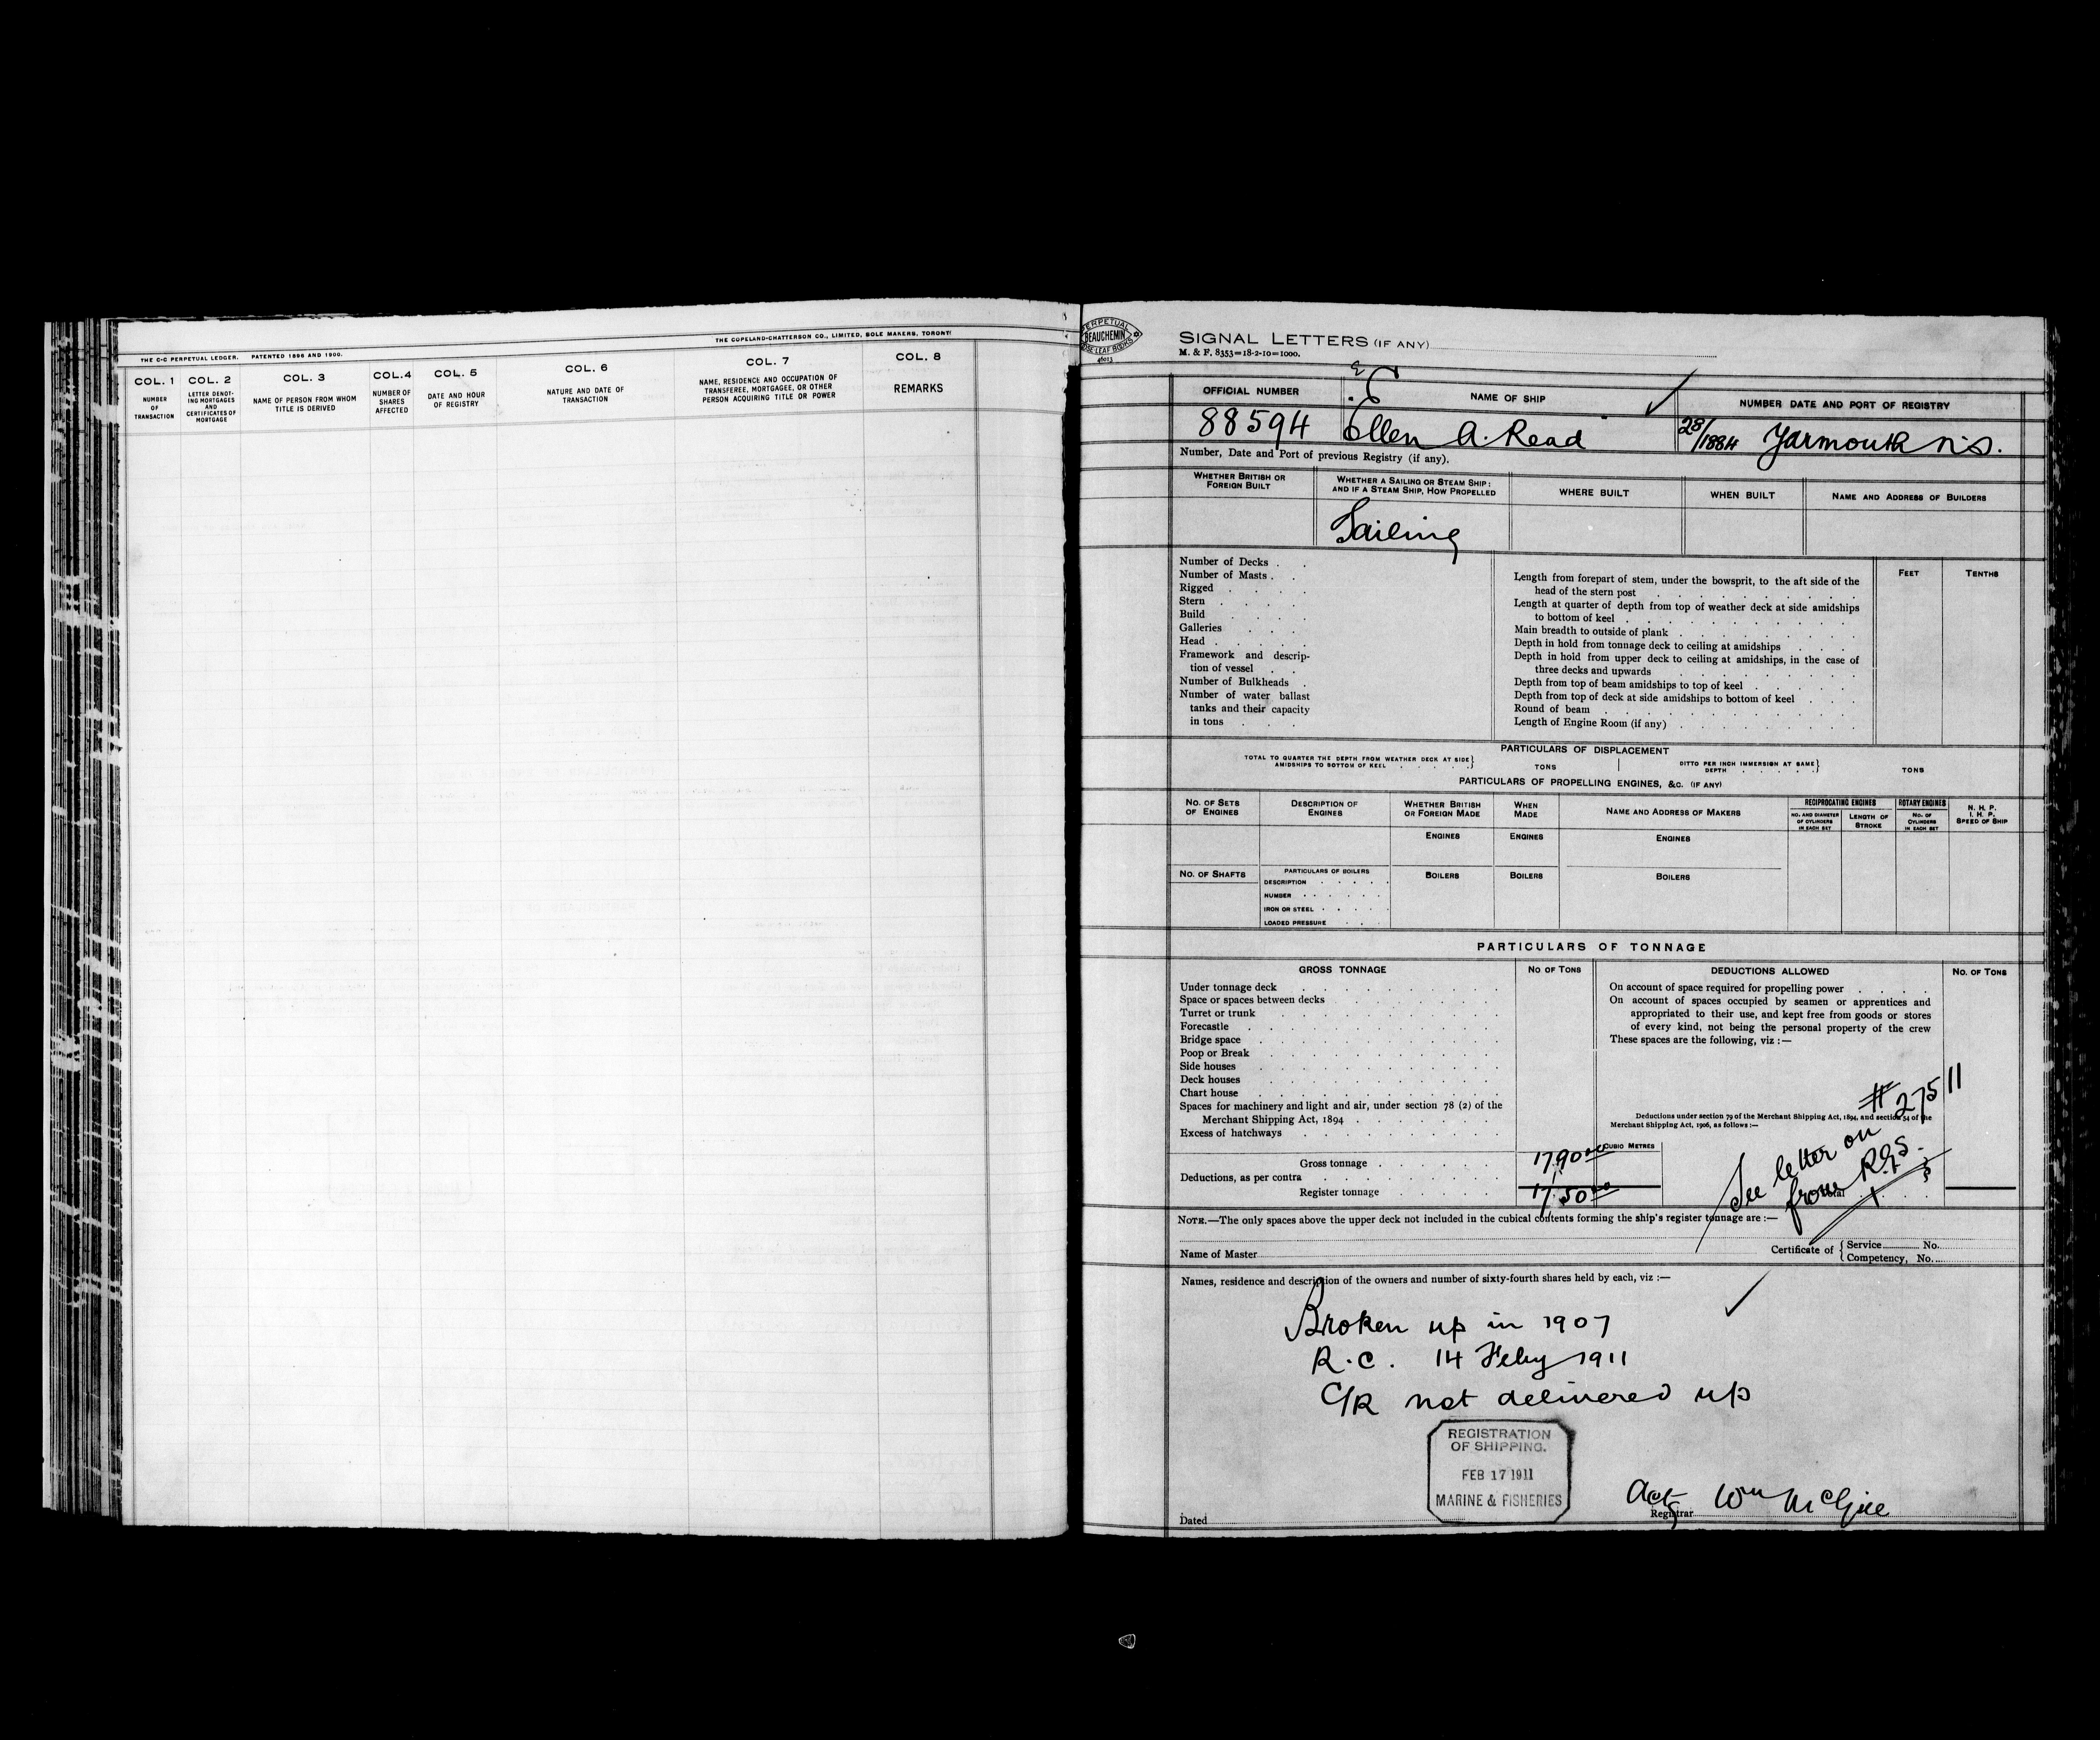 THE C-C PERPETUAL LEDGER. PATENTED 1896 AND 1900.
THE COPELAND-CHATTERSON CO., LIMITED, SOLE MAKERS, TORONTO
COL. 1 COL. 2 COL. 3 COL. 4 COL. 5 COL. 6 COL. 7 COL. 8
NUMBER OF TRANSACTION
LETTER DENOTING MORTGAGES AND CERTIFICATES OF MORTGAGE
NAME OF PERSON FROM WHOM TITLE IS DERIVED
NUMBER OF SHARES AFFECTED
DATE AND HOUR OF REGISTRY
NATURE AND DATE OF TRANSACTION
NAME, RESIDENCE AND OCCUPATION OF TRANSFEREE, MORTGAGEE, OR OTHER PERSON ACQUIRING TITLE OR POWER
REMARKS
PERPETUAL
BEAUCHEMIN
LOOSE LEAF BOOKS
SIGNAL LETTERS (IF ANY)
M. & F. 8353=18-2-10=1000.
OFFICIAL NUMBER NAME OF SHIP NUMBER DATE AND PORT OF REGISTRY
88594 Ellen A. Read 28/1884 Yarmouth N.S.
Number, Date and Port of previous Registry (if any).
WHETHER BRITISH OR FOREIGN BUILT
WHETHER A SAILING OR STEAM SHIP; AND IF A STEAM SHIP, HOW PROPELLED
WHERE BUILT
WHEN BUILT
NAME AND ADDRESS OF BUILDERS
Sailing
Number of Decks
Number of Masts
Rigged
Stern
Build
Galleries
Head
Framework and descrip-
tion of vessel
Number of Bulkheads
Number of water ballast
tanks and their capacity
in tons
FEET TENTHS
Length from forepart of stem, under the bowsprit, to the aft side of the
head of the stern post
Length at quarter of depth from top of weather deck at side amidships
to bottom of keel
Main breadth to outside of plank
Depth in hold from tonnage deck to ceiling at amidships
Depth in hold from upper deck to ceiling at amidships, in the case of
three decks and upwards
Depth from top of beam amidships to top of keel
Depth from top of deck at side amidships to bottom of keel
Round of beam
Length of Engine Room (if any)
PARTICULARS OF DISPLACEMENT
TOTAL TO QUARTER THE DEPTH FROM WEATHER DECK AT SIDE
AMIDSHIPS TO BOTTOM OF KEEL
TONS
DITTO PER INCH IMMERSION AT SAME
DEPTH
TONS
PARTICULARS OF PROPELLING ENGINES, &C. (IF ANY)
NO. OF SETS OF ENGINES
DESCRIPTION OF ENGINES
WHETHER BRITISH OR FOREIGN MADE
WHEN MADE
NAME AND ADDRESS OF MAKERS
RECIPROCATING ENGINES
NO. AND DIAMETER OF CYLINDERS IN EACH SET
LENGTH OF STROKE
ROTARY ENGINES
NO. OF CYLINDERS IN EACH SET
N. H. P.
I. H. P.
SPEED OF SHIP
ENGINES ENGINES ENGINES
NO. OF SHAFTS
PARTICULARS OF BOILERS
DESCRIPTION
NUMBER
IRON OR STEEL
LOADED PRESSURE
BOILERS BOILERS BOILERS
PARTICULARS OF TONNAGE
GROSS TONNAGE NO OF TONS DEDUCTIONS ALLOWED NO. OF TONS
Under tonnage deck
Space or spaces between decks
Turret or trunk
Forecastle
Bridge space
Poop or Break
Side houses
Deck houses
Chart house
Spaces for machinery and light and air, under section 78 (2) of the
Merchant Shipping Act, 1894
Excess of hatchways
On account of space required for propelling power
On account of spaces occupied by seamen or apprentices and
appropriated to their use, and kept free from goods or stores
of every kind, not being the personal property of the crew
These spaces are the following, viz :—
Deductions under section 79 of the Merchant Shipping Act, 1894, and section 54 of the
Merchant Shipping Act, 1906, as follows :—
CUBIC METRES
Gross tonnage 1790
Deductions, as per contra
Register tonnage 1750
Total
See letter on
#27511
from R.G.S.
NOTE.—The only spaces above the upper deck not included in the cubical contents forming the ship's register tonnage are :—
Name of Master
Certificate of
Service No.
Competency, No.
Names, residence and description of the owners and number of sixty-fourth shares held by each, viz :—
Broken up in 1907
R.C. 14 Feby 1911
C/R not delivered up
REGISTRATION
OF SHIPPING.
FEB 17 1911
MARINE & FISHERIES
Actg Wm McGill
Dated Registrar